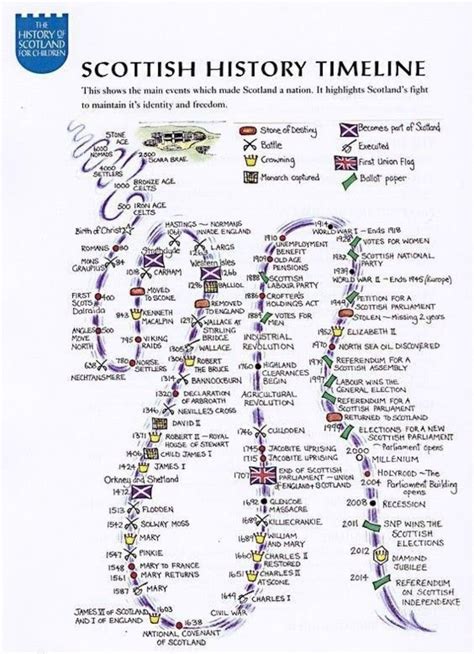 THE
HISTORY OF
SCOTLAND
FOR CHILDREN
SCOTTISH HISTORY TIMELINE
This shows the main events which made Scotland a nation. It highlights Scotland's fight
to maintain it's identity and freedom.
Stone of Destiny
Battle
Crowning
Monarch captured
Becomes part of Scotland
Executed
First Union Flag
Ballot paper
STONE
AGE
6000
NOMADS
4000
SETTLERS
2,500
SKARA BRAE
1000
BRONZE AGE
CELTS
500
IRON AGE
CELTS
Birth of Christ
ROMANS 80
MONS
GRAUPIUS 84
FIRST
SCOTS
Dalraida
ANGLES
MOVE
NORTH
638
NECHTANSMERE
780 NORSE
SETTLERS
795 VIKING
RAIDS
843 KENNETH
MACALPIN
MOVED
TO SCONE
1018 CARHAM
Strathclyde
HASTINGS ~ NORMANS
1066 INVADE ENGLAND
LARGS
Western Isles
1266
1296 BALLIOL
REMOVED
TO ENGLAND
1297 WALLACE AT
STIRLING
BRIDGE
1305 WALLACE
1306 ROBERT
THE BRUCE
1314 BANNOCKBURN
1320 DECLARATION
OF ARBROATH
1346 NEVILLE'S CROSS
DAVID II
1371 ROBERT II ~ ROYAL
HOUSE OF STEWART
1406 CHILD JAMES I
1424 JAMES I
Orkney and Shetland
1472
1513 FLODDEN
1542 SOLWAY MOSS
MARY
1547 PINKIE
1548 MARY TO FRANCE
1561 MARY RETURNS
1587 MARY
JAMES VI OF SCOTLAND
AND I OF ENGLAND
1603
1638
NATIONAL COVENANT
OF SCOTLAND
CIVIL WAR
1649 CHARLES I
1651 CHARLES II
AT SCONE
1660 CHARLES II
RESTORED
1689 WILLIAM
AND MARY
KILLIECRANKIE
1692 GLENCOE
MASSACRE
1707 END OF SCOTTISH
PARLIAMENT ~ UNION
OF ENGLAND & SCOTLAND
JACOBITE UPRISING
1745 JACOBITE UPRISING
1746 CULLODEN
AGRICULTURAL
REVOLUTION
1760 HIGHLAND
CLEARANCES
BEGIN
INDUSTRIAL
REVOLUTION
VOTES FOR
MEN
1886 CROFTER'S
HOLDINGS ACT
1888 SCOTTISH
LABOUR PARTY
1909 OLD AGE
PENSIONS
1910 UNEMPLOYMENT
BENEFIT
1914 WORLD WAR I ~ Ends 1918
1928 VOTES FOR WOMEN
SCOTTISH NATIONAL
PARTY
WORLD WAR II ~ Ends 1945 (Europe)
PETITION FOR A
SCOTTISH PARLIAMENT
STOLEN ~ Missing 2 years
ELIZABETH II
1970 NORTH SEA OIL DISCOVERED
REFERENDUM FOR A
SCOTTISH ASSEMBLY
1997 LABOUR WINS THE
GENERAL ELECTION
REFERENDUM FOR A
SCOTTISH PARLIAMENT
RETURNED TO SCOTLAND
1999 ELECTIONS FOR A NEW
SCOTTISH PARLIAMENT
~ Parliament opens
2000 MILLENIUM
2004 HOLYROOD ~ The
Parliament Building
opens
2008 RECESSION
2011 SNP WINS THE
SCOTTISH
ELECTIONS
2012 DIAMOND
JUBILEE
2014 REFERENDUM
ON SCOTTISH
INDEPENDENCE